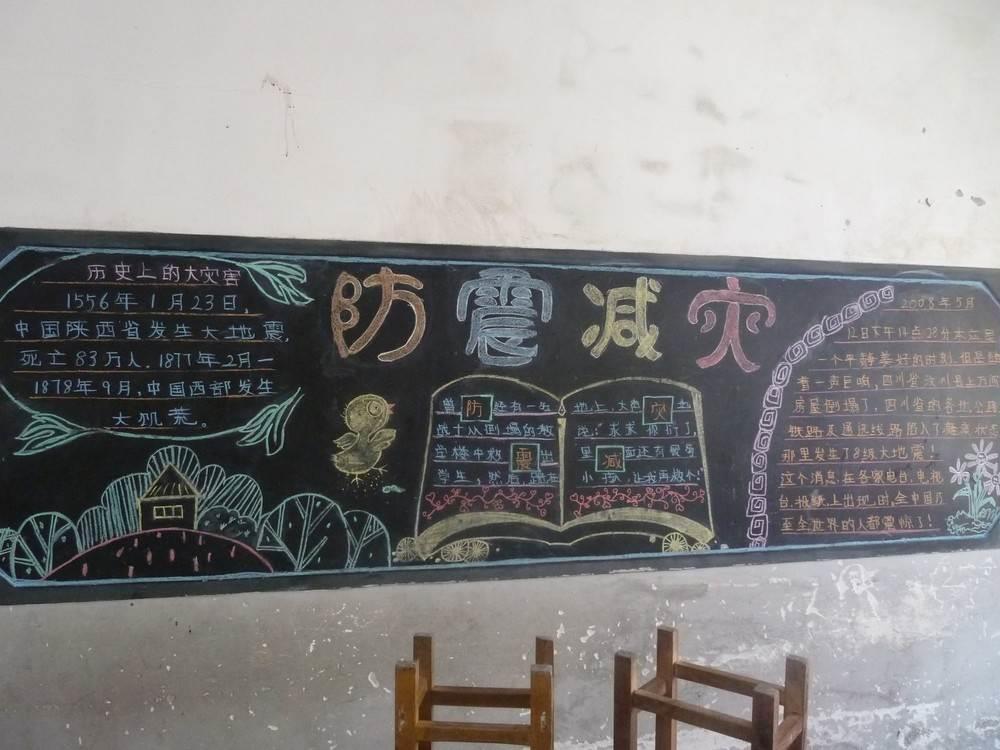 历史上的大灾害
1556年1月23日,
中国陕西省发生大地震,
死亡83万人.1877年2月一
1878年9月,中国西部发生
大饥荒。
防震减灾
曾防经有一
战士从倒塌的教
学楼中救震出
学生,然后跪在
地上,大声灾
说:求求你们了,
里减面还有
小孩,让我再救个!
2008年5月
12日下午14点28分
一个平静美好的时刻,但是
着一声巨响,四川省汶川县上万间
房屋倒塌了,四川省的各地公路
铁路及通迅线路陷入了瘫痪状态
那里发生了8级大地震!
这个消息在各家电台,电视
台报纸上出现时,全中国乃
至全世界的人都震惊了!